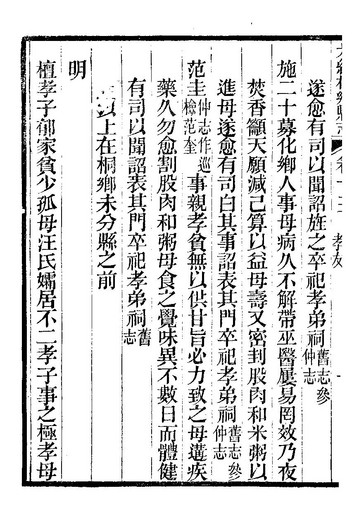 遂愈有司以聞詔旌之卒祀孝弟祠舊志參仲志
施二十募化鄉人事母病久不解帶巫醫屢易罔效乃夜
焚香籲天願減己算以益母壽又密封股肉和米粥以
進母遂愈有司白其事詔表其門卒祀孝弟祠舊志參仲志
范圭仲志作巡檢范奎事親孝貧無以供甘旨必力致之母遘疾
藥久勿愈割股肉和粥母食之覺味異不數日而體健
有司以聞詔表其門卒祀孝弟祠舊志
以上在桐鄉未分縣之前
明
檀孝子郁家貧少孤母汪氏孀居不二孝子事之極孝母